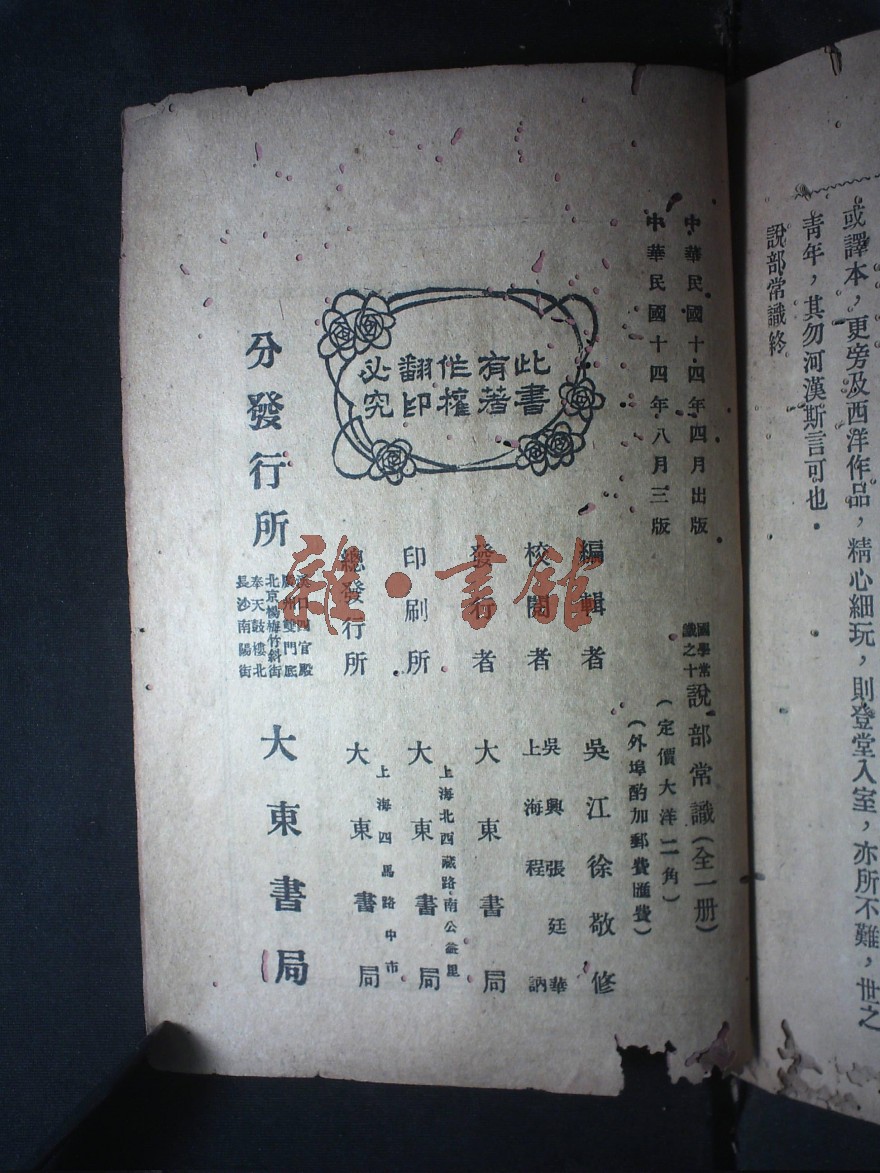 或譯本，更旁及西洋作品，精心細玩，則登堂入室，亦所不難，世之
青年，其勿河漢斯言可也．
說部常識終
中華民國十四年四月出版
中華民國十四年八月三版
此書
有著
作權
翻印
必究
國學常
識之十
說部常識（全一册）
（定價大洋二角）
（外埠酌加郵費匯費）
編輯者 吳江徐敬修
校閱者
吳興張廷華
上海程訥
發行者 大東書局
上海北西藏路南公益里
印刷所 大東書局
上海四馬路中市
總發行所 大東書局
分發行所
漢口四官殿
廣州雙門底
北京楊梅竹斜街
奉天鼓樓北
長沙南陽街
大東書局
雜·書館